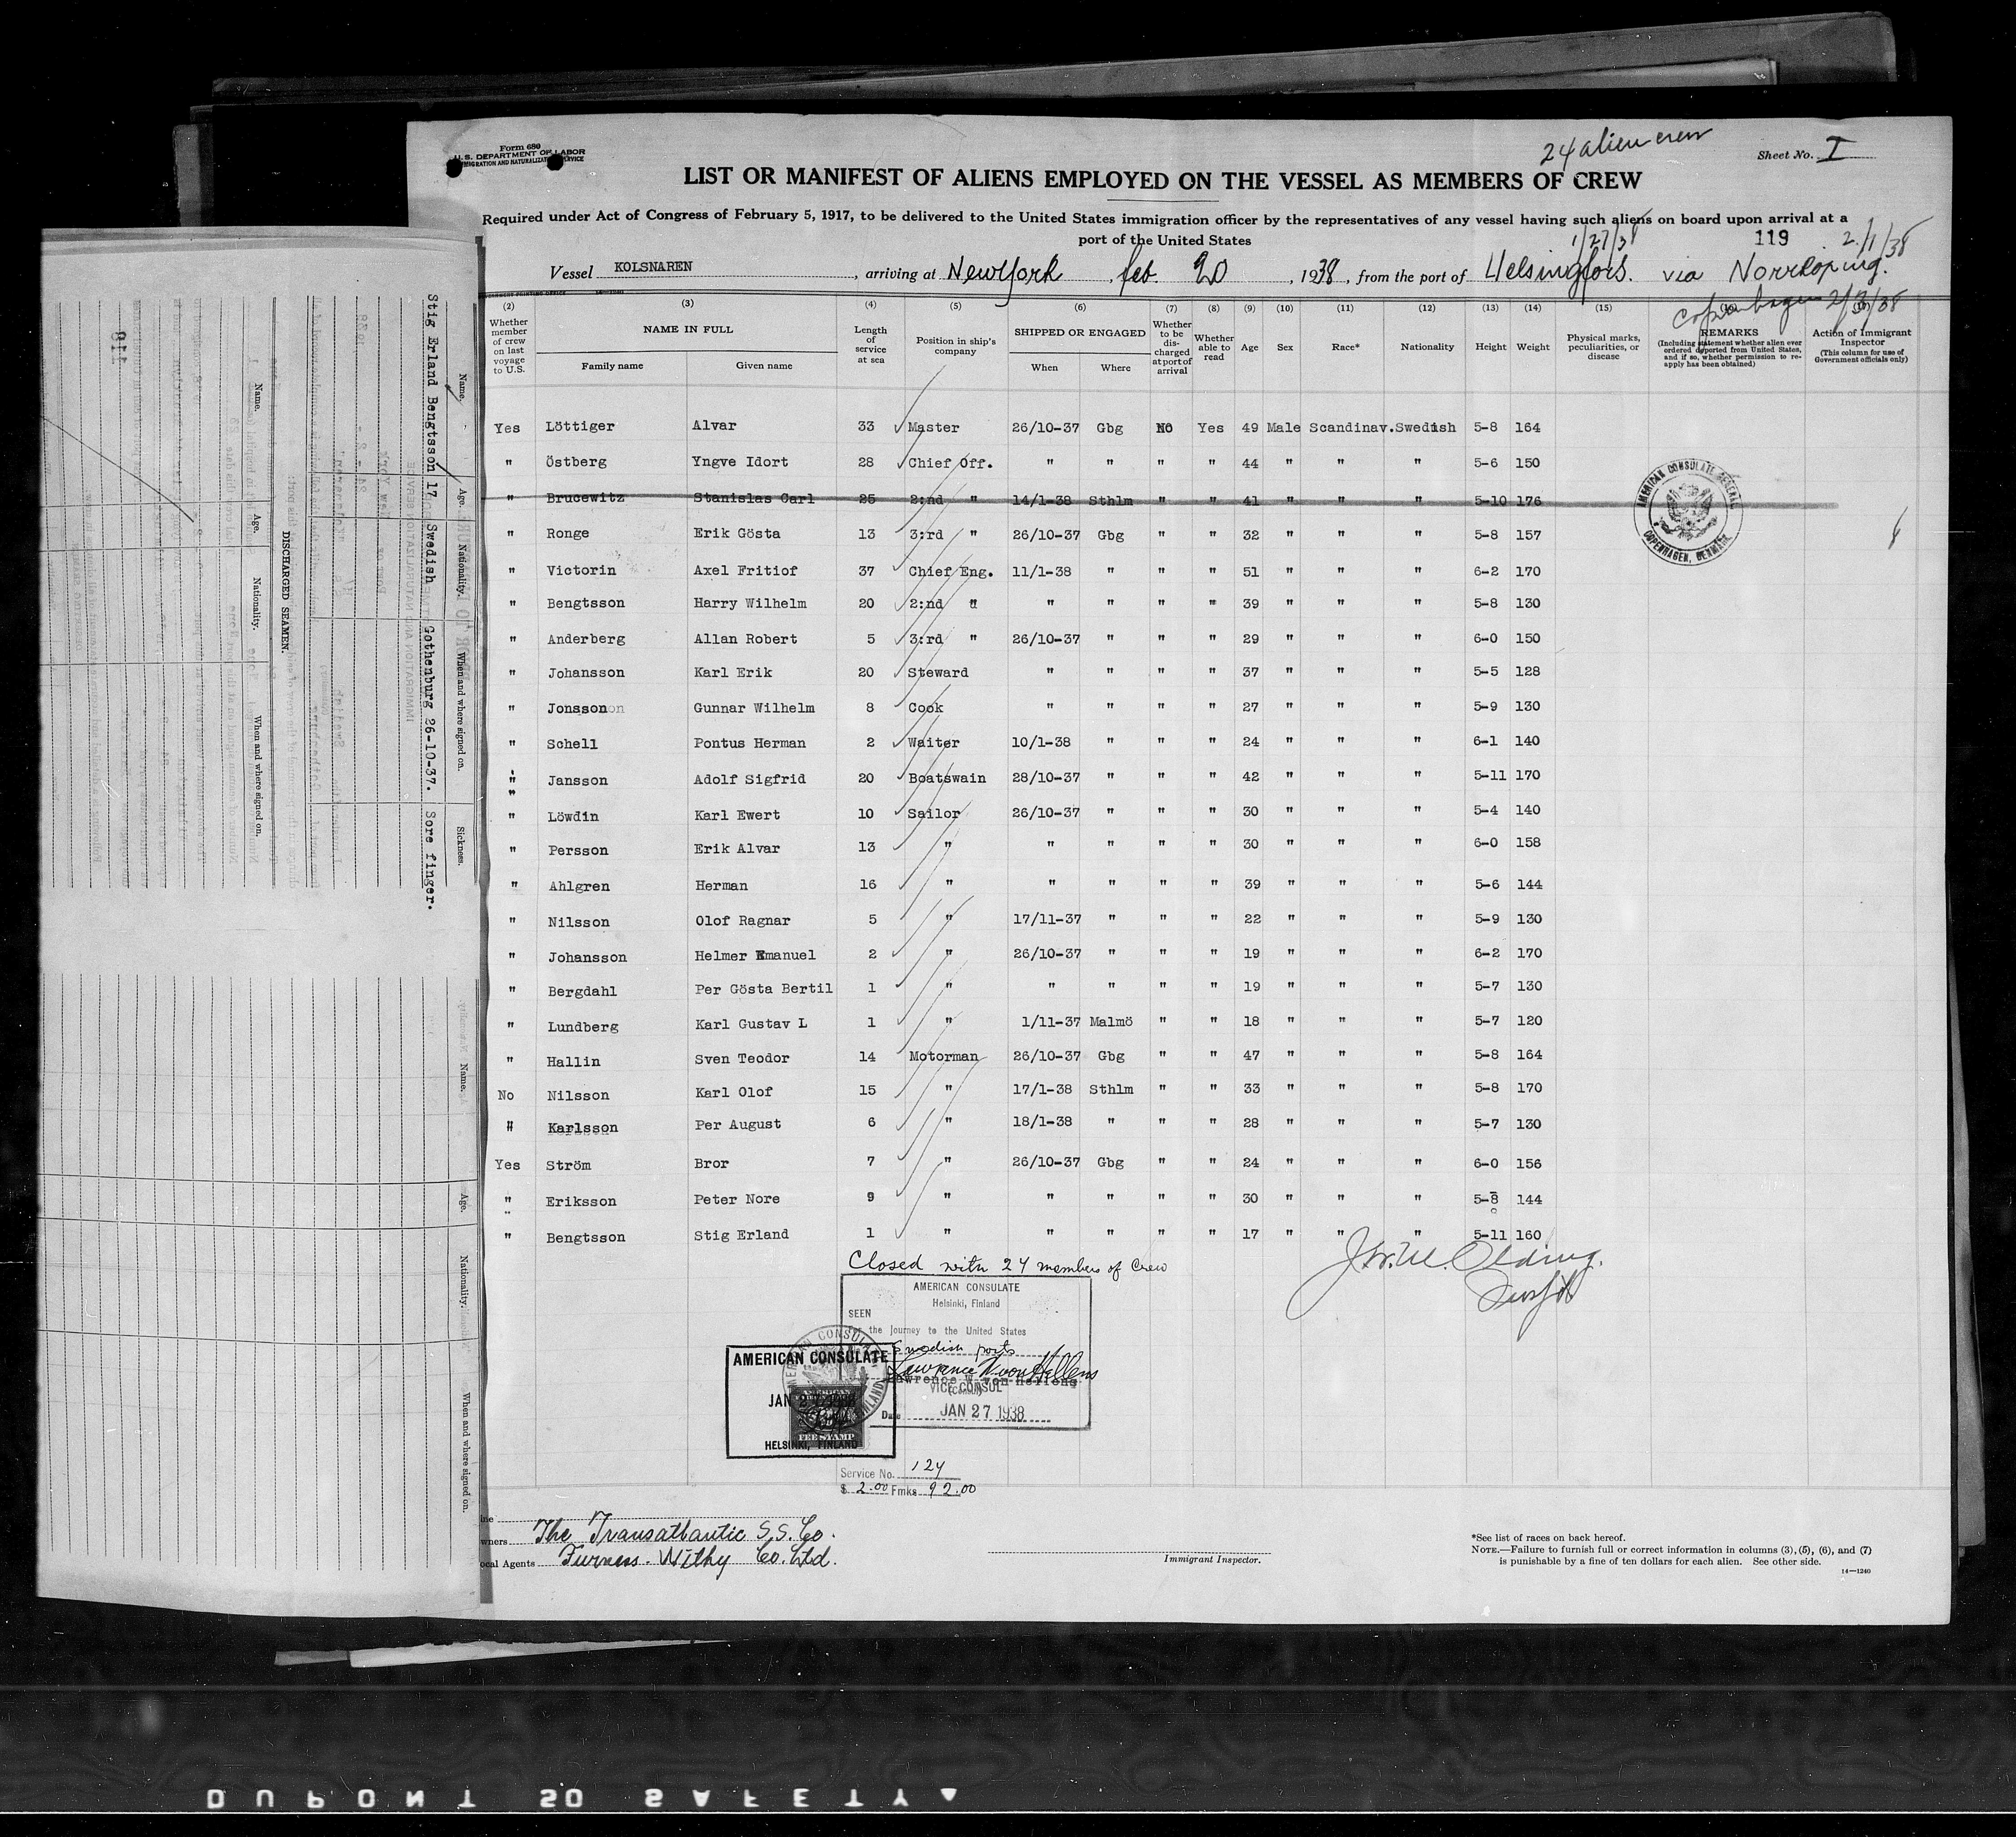 Form 680
U.S. DEPARTMENT OF LABOR
IMMIGRATION AND NATURALIZATION SERVICE
24 alien crew
Sheet No. I
LIST OR MANIFEST OF ALIENS EMPLOYED ON THE VESSEL AS MEMBERS OF CREW
Required under Act of Congress of February 5, 1917, to be delivered to the United States immigration officer by the representatives of any vessel having such aliens on board upon arrival at a
port of the United States
1/27/38 119 2/1/38
Vessel KOLSNAREN, arriving at New York, feb. 20, 1938, from the port of Helsingfors. via Norrkoping.
Copenhagen 2/3/38
(2) (3) (4) (5) (6) (7) (8) (9) (10) (11) (12) (13) (14) (15)
Whether member of crew on last voyage to U.S.
NAME IN FULL
Family name Given name
Length of service at sea
Position in ship's company
SHIPPED OR ENGAGED
When Where
Whether to be discharged at port of arrival
Whether able to read
Age
Sex
Race*
Nationality
Height
Weight
Physical marks, peculiarities, or disease
REMARKS
(Including statement whether alien ever ordered deported from United States, and if so, whether permission to reapply has been obtained)
Action of Immigrant Inspector
(This column for use of Government officials only)
Yes Löttiger Alvar 33 Master 26/10-37 Gbg No Yes 49 Male Scandinav. Swedish 5-8 164
" Östberg Yngve Idort 28 Chief Off. " " " " 44 " " " 5-6 150
" Brucewitz Stanislas Carl 25 2:nd " 14/1-38 Sthlm " " 41 " " " 5-10 176
" Ronge Erik Gösta 13 3:rd " 26/10-37 Gbg " " 32 " " " 5-8 157
" Victorin Axel Fritiof 37 Chief Eng. 11/1-38 " " " 51 " " " 6-2 170
" Bengtsson Harry Wilhelm 20 2:nd " " " " " 39 " " " 5-8 130
" Anderberg Allan Robert 5 3:rd " 26/10-37 " " " 29 " " " 6-0 150
" Johansson Karl Erik 20 Steward " " " " 37 " " " 5-5 128
" Jonsson Gunnar Wilhelm 8 Cook " " " " 27 " " " 5-9 130
" Schell Pontus Herman 2 Waiter 10/1-38 " " " 24 " " " 6-1 140
" Jansson Adolf Sigfrid 20 Boatswain 28/10-37 " " " 42 " " " 5-11 170
" Löwdin Karl Ewert 10 Sailor 26/10-37 " " " 30 " " " 5-4 140
" Persson Erik Alvar 13 " " " " " 30 " " " 6-0 158
" Ahlgren Herman 16 " " " " " 39 " " " 5-6 144
" Nilsson Olof Ragnar 5 " 17/11-37 " " " 22 " " " 5-9 130
" Johansson Helmer Emanuel 2 " 26/10-37 " " " 19 " " " 6-2 170
" Bergdahl Per Gösta Bertil 1 " " " " " 19 " " " 5-7 130
" Lundberg Karl Gustav L 1 " 1/11-37 Malmö " " 18 " " " 5-7 120
" Hallin Sven Teodor 14 Motorman 26/10-37 Gbg " " 47 " " " 5-8 164
No Nilsson Karl Olof 15 " 17/1-38 Sthlm " " 33 " " " 5-8 170
" Karlsson Per August 6 " 18/1-38 " " " 28 " " " 5-7 130
Yes Ström Bror 7 " 26/10-37 Gbg " " 24 " " " 6-0 156
" Eriksson Peter Nore 9 " " " " " 30 " " " 5-8 144
" Bengtsson Stig Erland 1 " " " " " 17 " " " 5-11 160
Closed with 24 members of Crew
AMERICAN CONSULATE GENERAL
COPENHAGEN, DENMARK.
AMERICAN CONSULATE
Helsinki, Finland
SEEN
For the Journey to the United States
Swedish ports
Lawrence W. von Hellens
VICE CONSUL
Date JAN 27 1938
AMERICAN CONSULATE
JAN 27 1938
FEE STAMP
HELSINKI, FINLAND
Service No. 124
$ 2.00 Fmks 92.00
Owners The Transatlantic S.S. Co.
Local Agents Furness. Withy Co. Ltd.
Immigrant Inspector.
*See list of races on back hereof.
NOTE.—Failure to furnish full or correct information in columns (3), (5), (6), and (7)
is punishable by a fine of ten dollars for each alien. See other side.
14—1240
Name. Age. Nationality. When and where signed on. Sickness.
Stig Erland Bengtsson 17 Swedish Gothenburg 26-10-37. Sore finger.
DISCHARGED SEAMEN.
Name. Age. Nationality. When and where signed on.
Name. Age. Nationality. When and where signed on.
118
DUPONT SO SAFETY